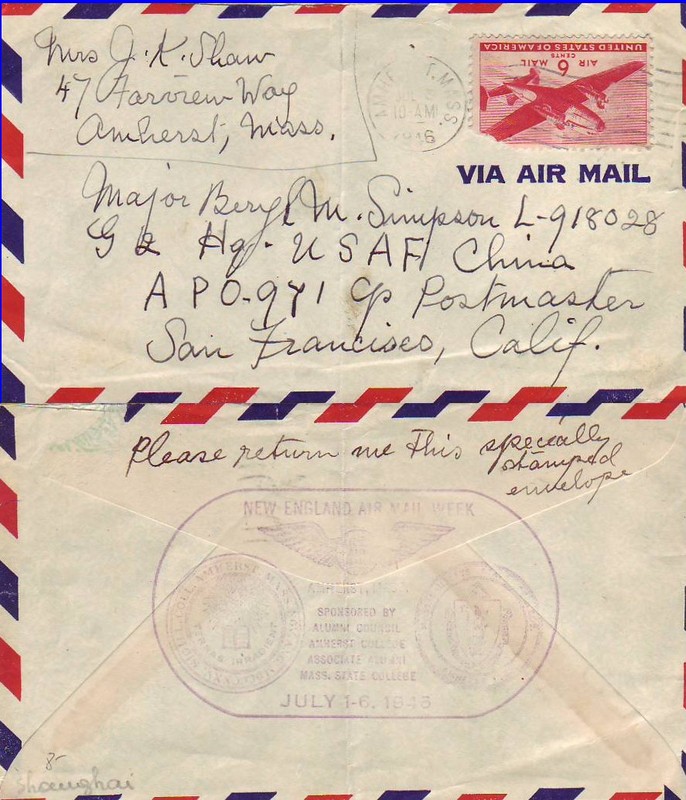 Mrs J. K. Shaw
47 Farview Way
Amherst, Mass.
AMHERST, MASS
10-AM
1946
UNITED STATES OF AMERICA
AIR MAIL
6
CENTS
VIA AIR MAIL
Major Beryl M. Simpson L-918028
G 2 Hq - USAF China
A P O - 971 c/o Postmaster
San Francisco, Calif.
Please return me this specially
stamped
envelope
NEW ENGLAND AIR MAIL WEEK
AMHERST,
SPONSORED BY
ALUMNI COUNCIL
AMHERST COLLEGE
ASSOCIATE ALUMNI
MASS. STATE COLLEGE
JULY 1-6, 1946
TERRAS IRRADIENT
8-
Shanghai